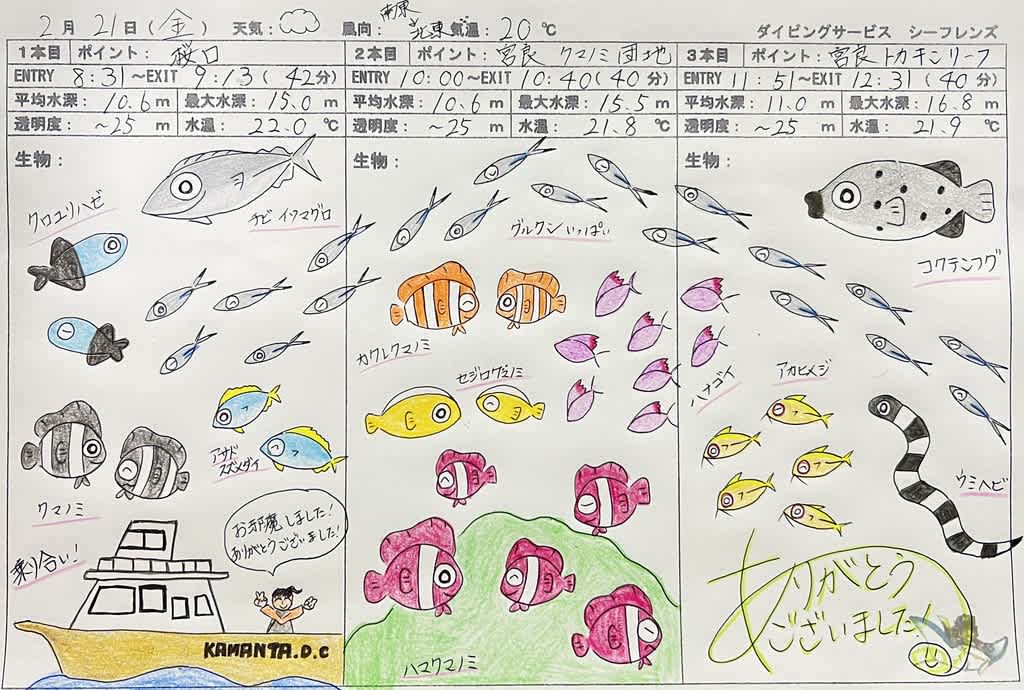 2月21日(金) 天気: 風向: 南東 北東 気温: 20℃ ダイビングサービス シーフレンズ
1本目 ポイント: 桜口
ENTRY 8:31~EXIT 9:13(42分)
平均水深: 10.6m 最大水深: 15.0m
透明度: ~25m 水温: 22.0℃
生物:
クロユリハゼ
チビイソマグロ
クマノミ
アサドスズメダイ
乗り合い!
お邪魔しました!
ありがとうございました!
KAMANTA.D.C
2本目 ポイント: 宮良 クマノミ団地
ENTRY 10:00~EXIT 10:40(40分)
平均水深: 10.6m 最大水深: 15.5m
透明度: ~25m 水温: 21.8℃
生物:
グルクンいっぱい
カクレクマノミ
セジロクマノミ
ハナゴイ
ハマクマノミ
3本目 ポイント: 宮良 トカキンリーフ
ENTRY 11:51~EXIT 12:31(40分)
平均水深: 11.0m 最大水深: 16.8m
透明度: ~25m 水温: 21.9℃
生物:
コクテンフグ
アカヒメジ
ウミヘビ
ありがとう
ございました!